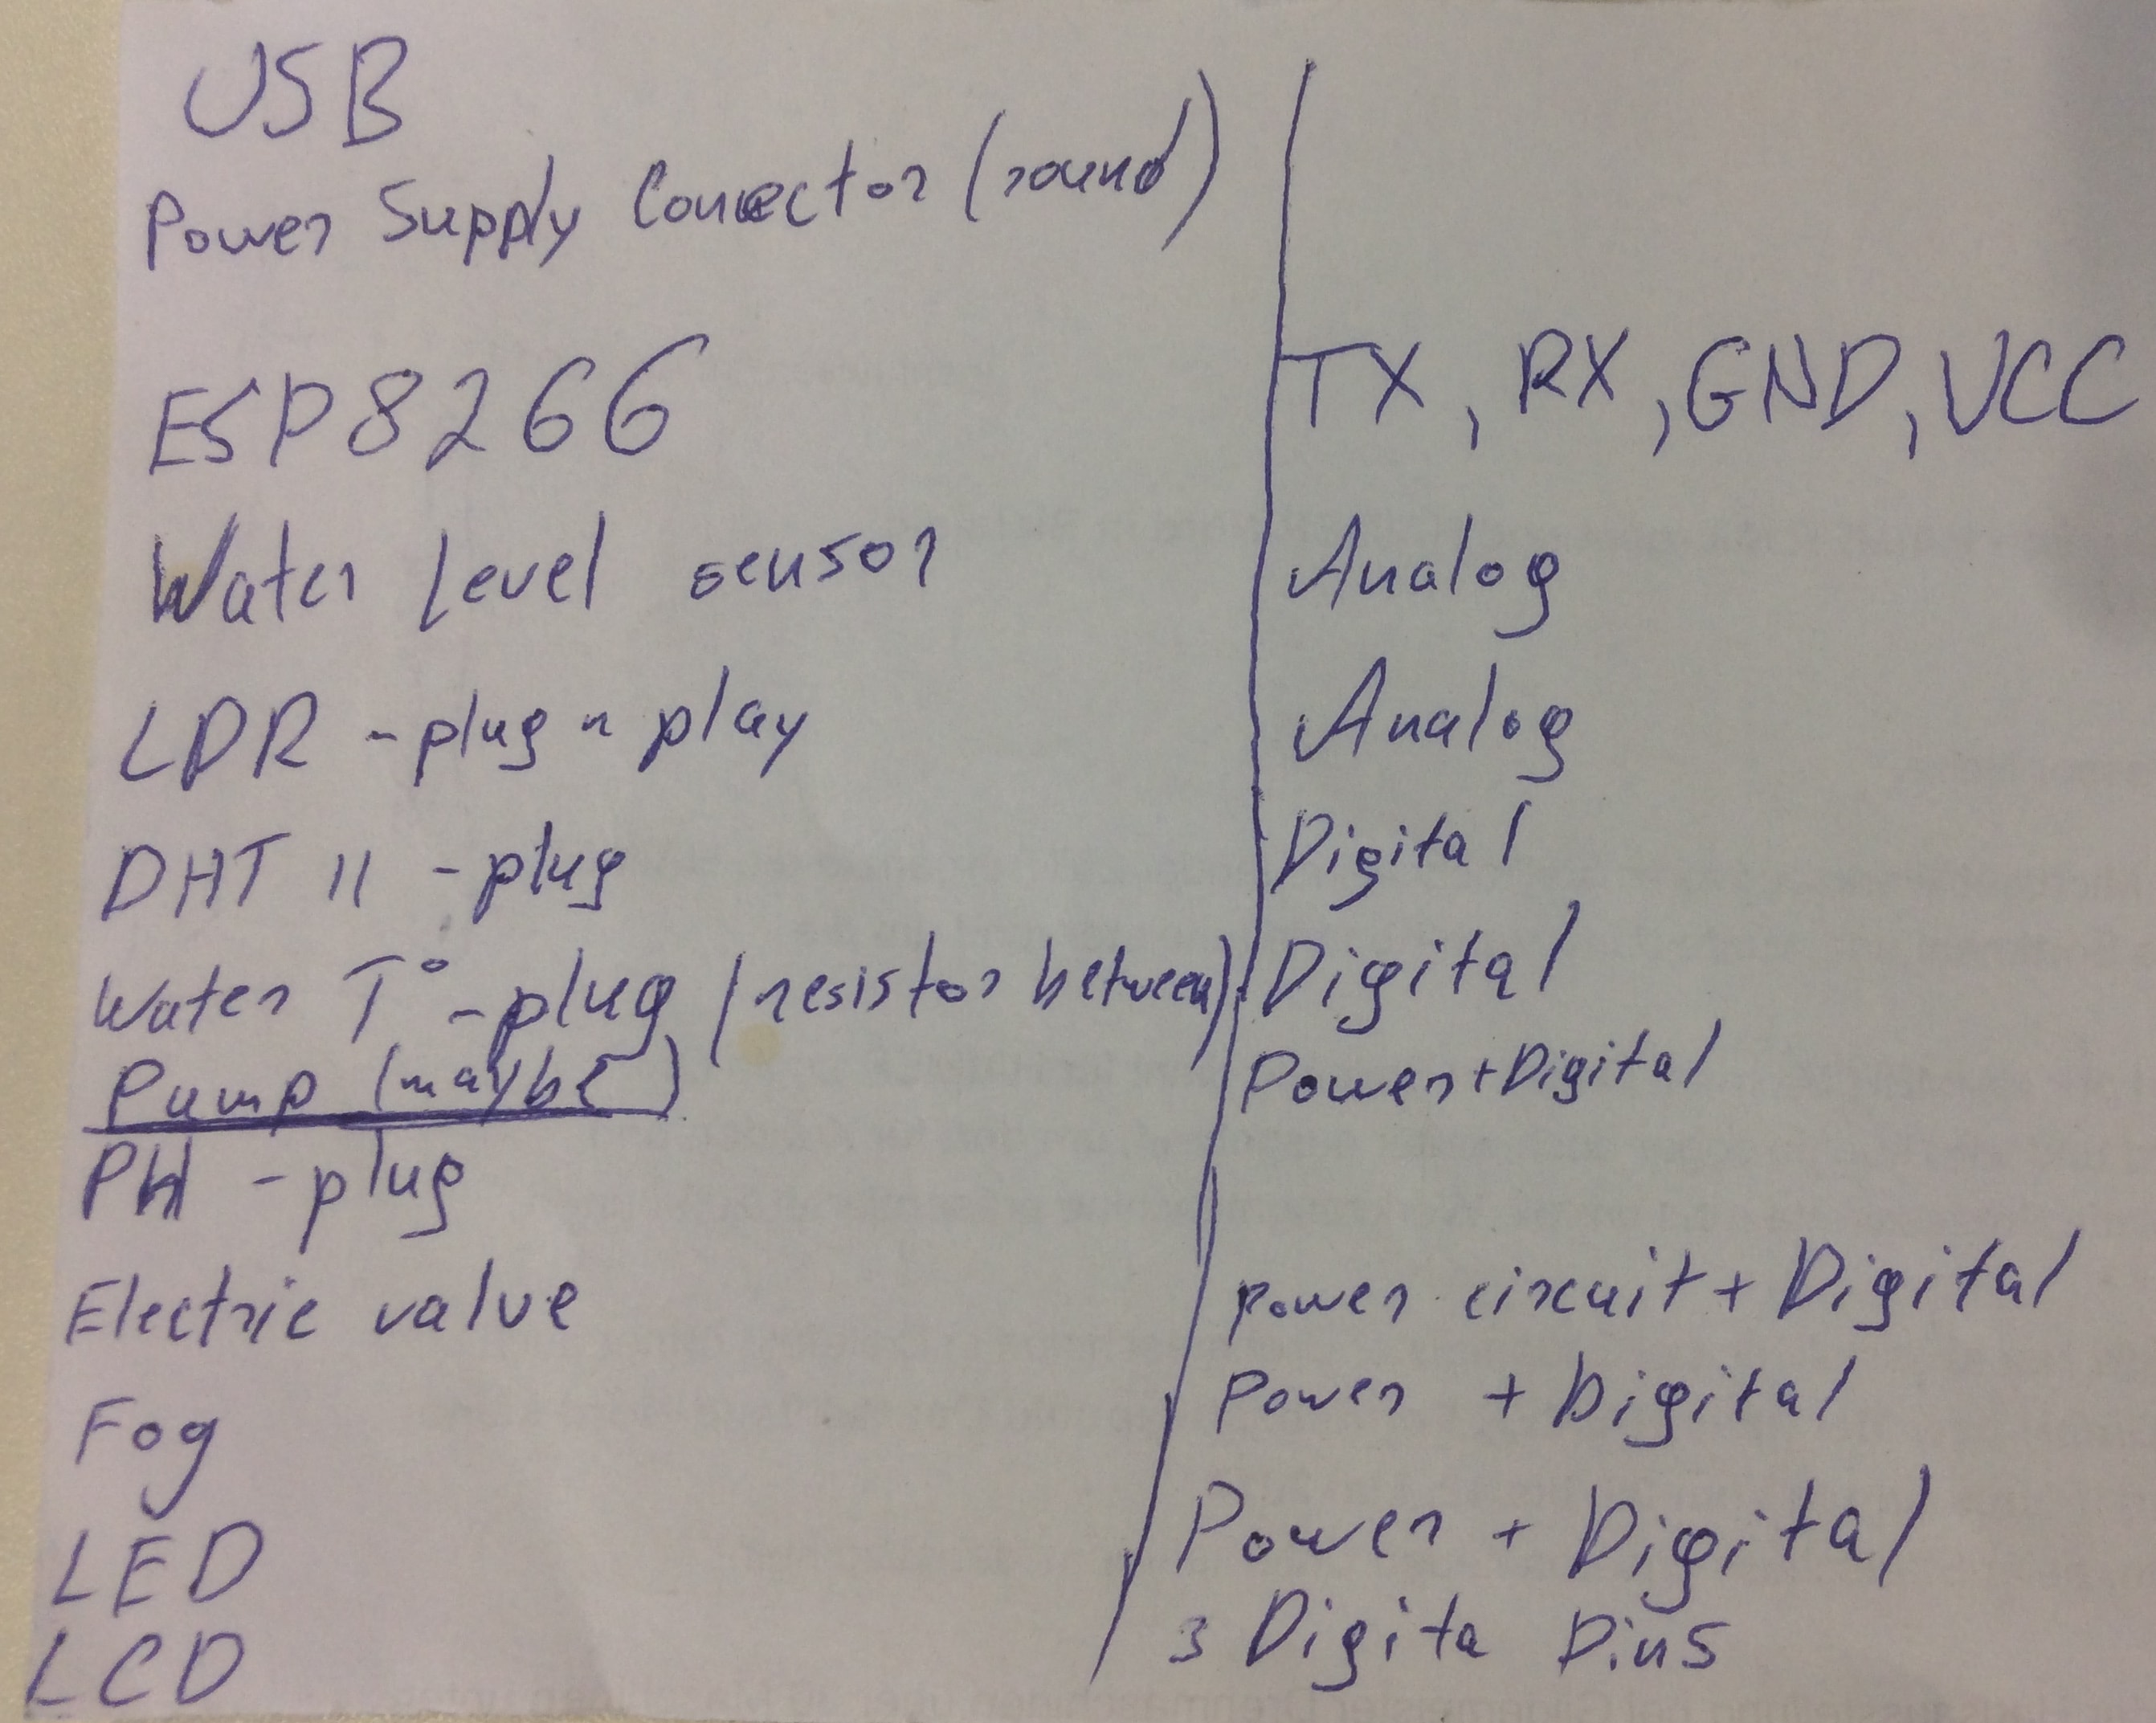 USB
Power Supply Conector (round)
ESP8266 TX, RX, GND, VCC
Water level sensor Analog
LDR - plug n play Analog
DHT 11 - plug Digital
Water T° - plug (resistor between) Digital
Pump (maybe) Power + Digital
PH - plug
Electric valve power circuit + Digital
Fog Power + Digital
LED Power + Digital
LCD 3 Digita Pins